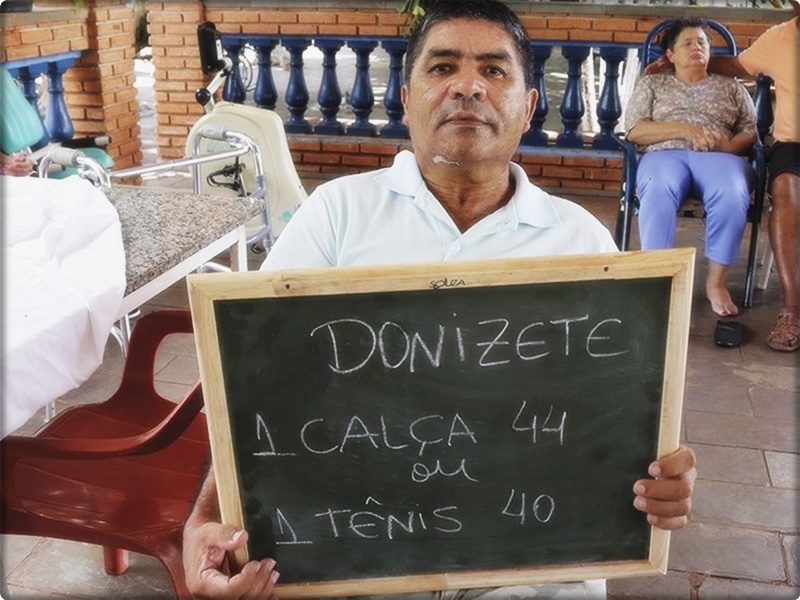 DONIZETE
1 CALÇA 44
ou
1 TÊNIS 40